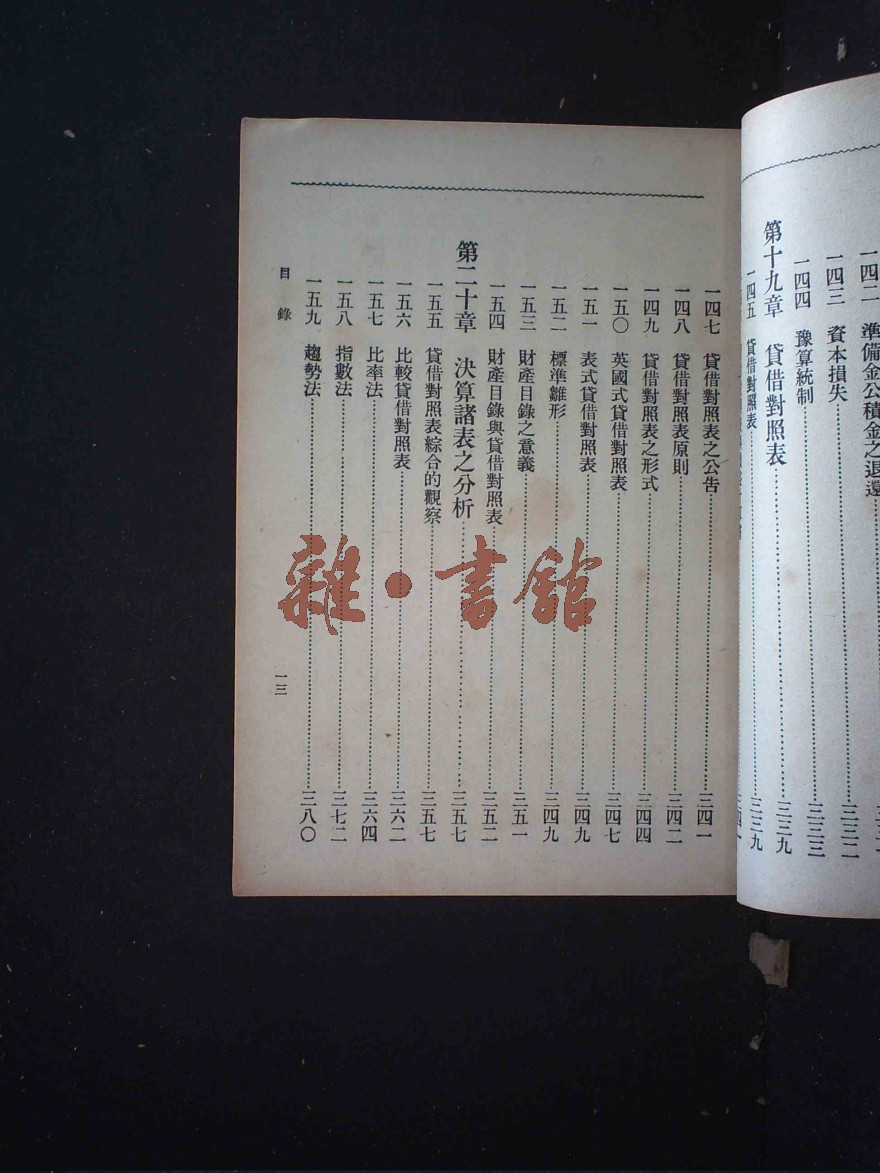 一四二 準備金公積金之退還
一四三 資本損失……三三二
一四四 豫算統制……三三三
第十九章 貸借對照表……三三九
一四五 貸借對照表……三三九
一四七 貸借對照表之公告……三四一
一四八 貸借對照表原則……三四二
一四九 貸借對照表之形式……三四四
一五〇 英國式貸借對照表……三四七
一五一 表式貸借對照表……三四九
一五二 標準雛形……三四九
一五三 財產目錄之意義……三五一
一五四 財產目錄與貸借對照表……三五二
第二十章 決算諸表之分析……三五七
一五五 貸借對照表綜合的觀察……三五七
一五六 比較貸借對照表……三六二
一五七 比率法……三六四
一五八 指數法……三七二
一五九 趨勢法……三八〇
目錄
一三
雜·書館